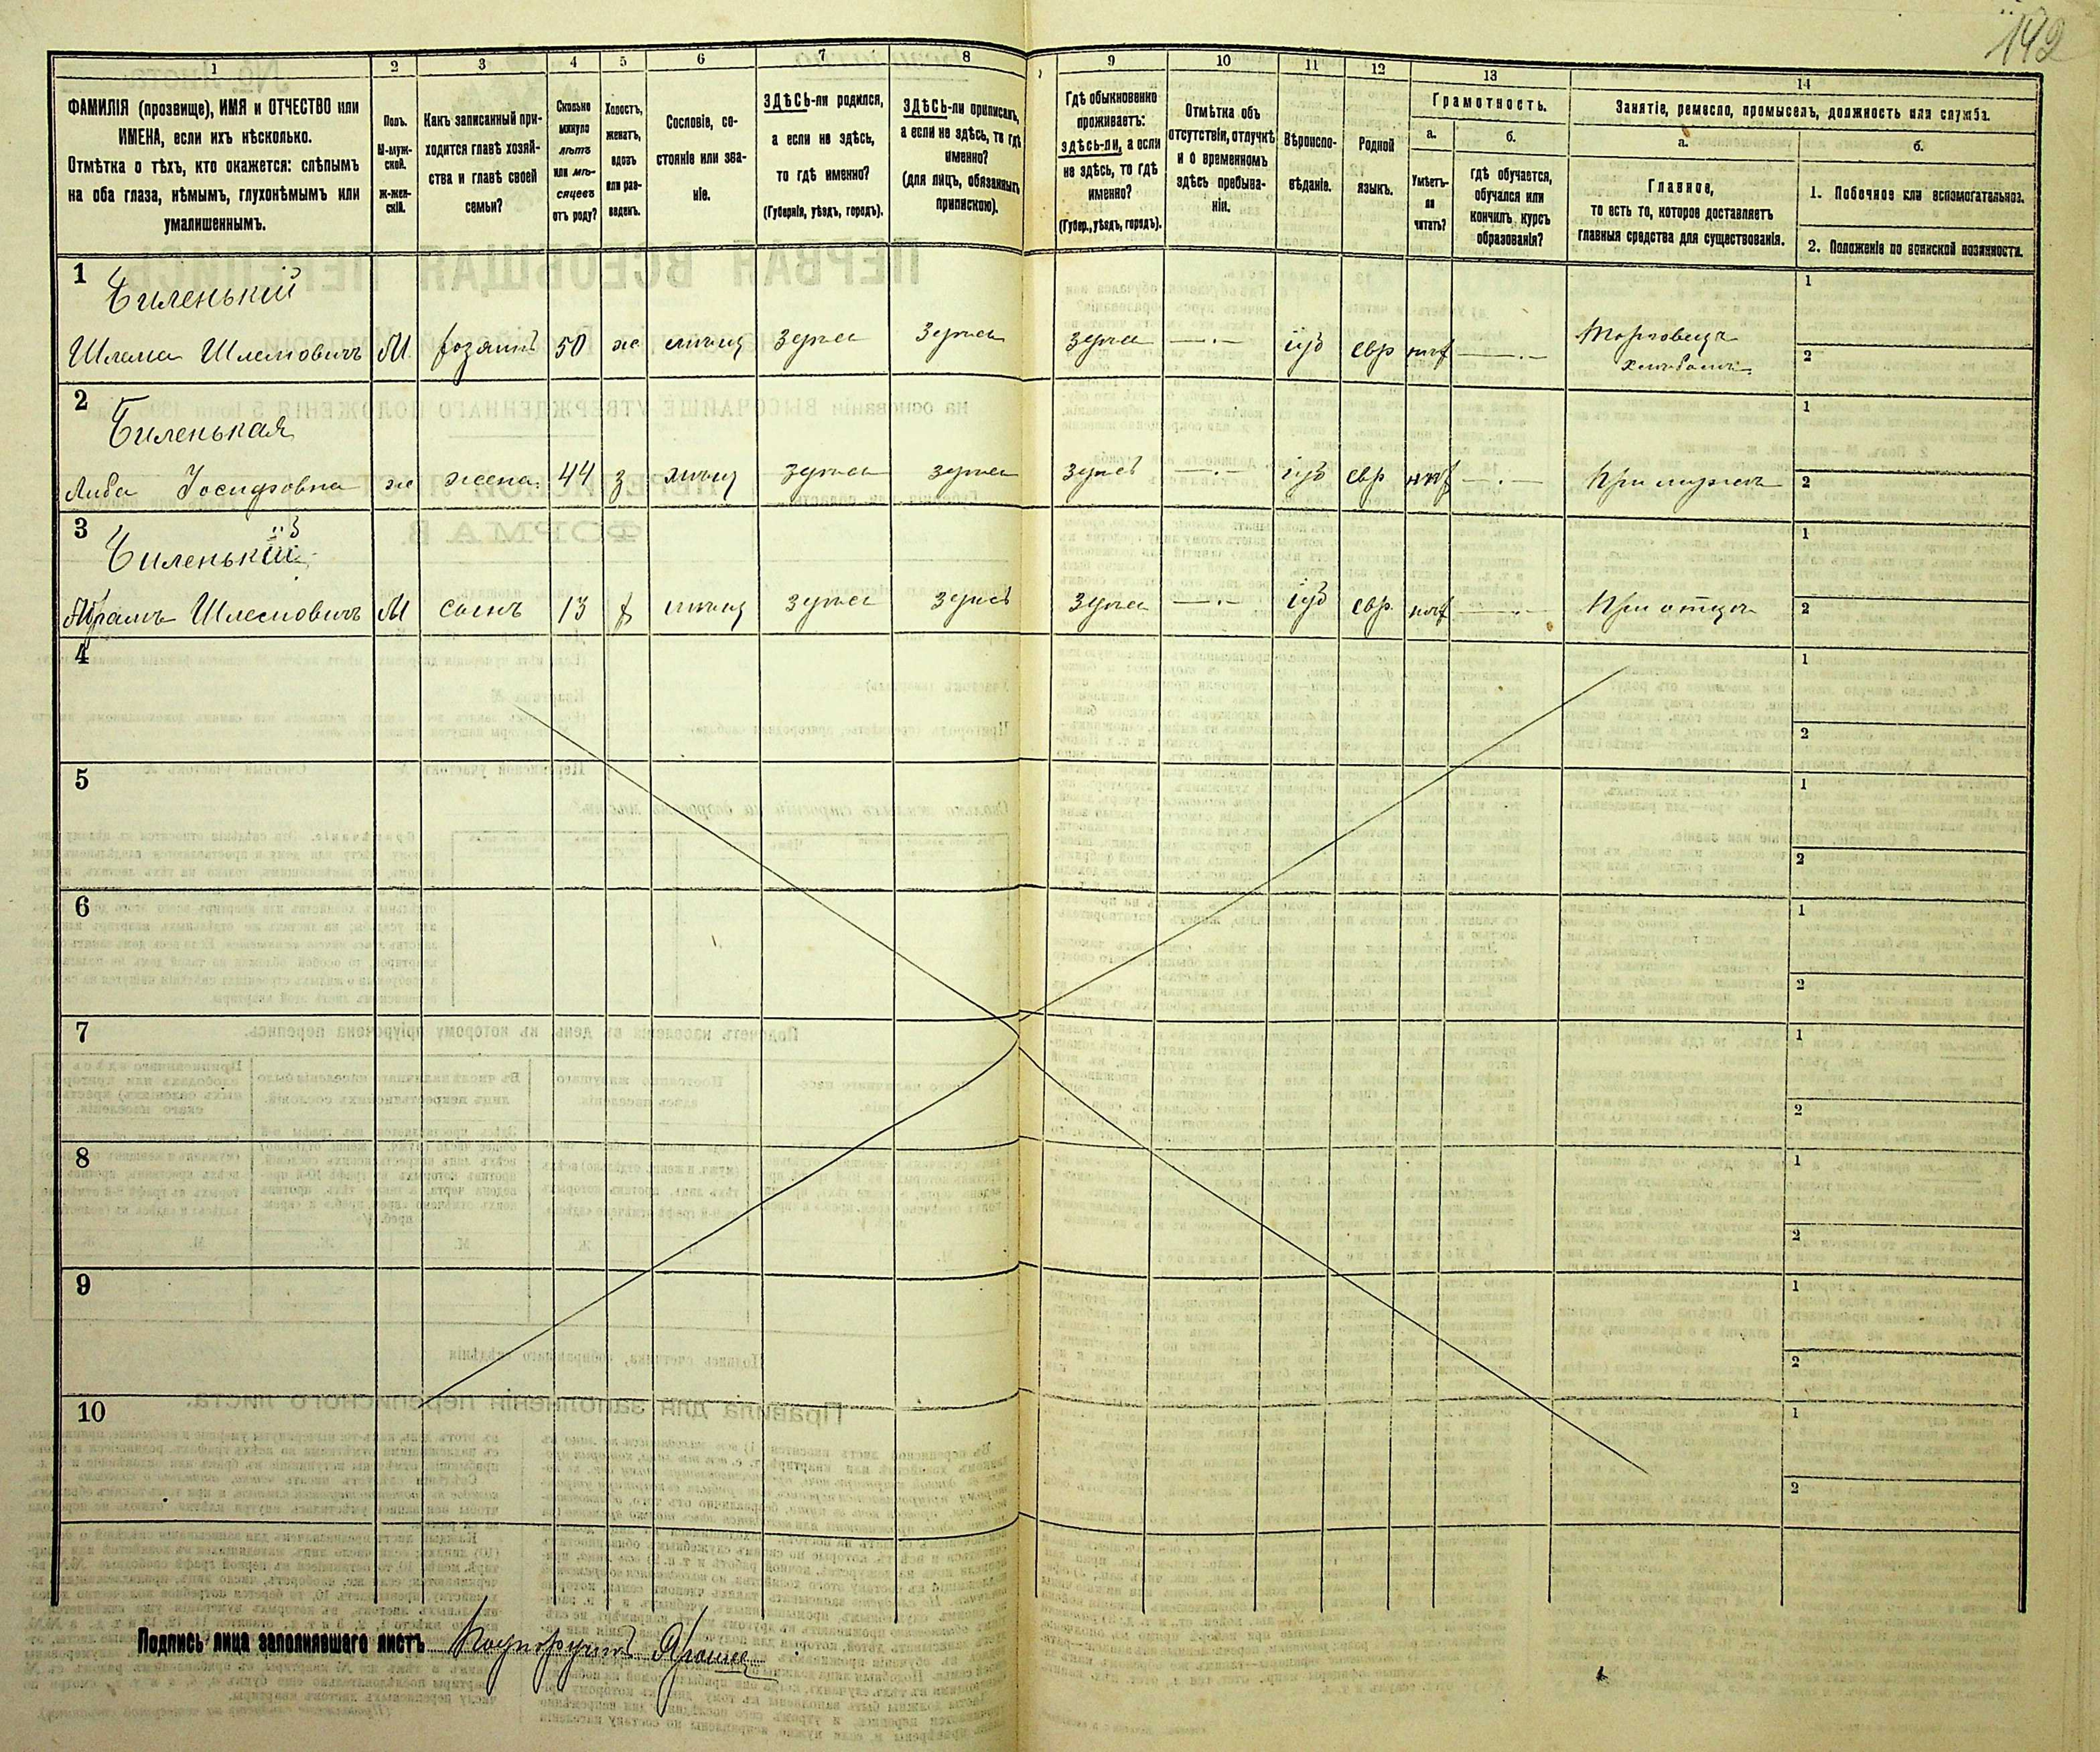 142
1
2
3
4
5
6
7
8
9
10
11
12
13
14
ФАМИЛІЯ (прозвище), ИМЯ и ОТЧЕСТВО или
ИМЕНА, если ихъ нѣсколько.
Отмѣтка о тѣхъ, кто окажется: слѣпымъ
на оба глаза, нѣмымъ, глухонѣмымъ или
умалишеннымъ.
Полъ.
М-муж-
ской.
Ж-жен-
скій.
Какъ записанный при-
ходится главѣ хозяй-
ства и главѣ своей
семьи?
Сколько
минуло
лѣтъ
или мѣ-
сяцевъ
отъ роду?
Холостъ,
женатъ,
вдовъ
или раз-
веденъ.
Сословіе, со-
стояніе или зва-
ніе.
ЗДѢСЬ-ли родился,
а если не здѣсь,
то гдѣ именно?
(Губернія, уѣздъ, городъ).
ЗДѢСЬ-ли приписанъ,
а если не здѣсь, то гдѣ
именно?
(для лицъ, обязанныхъ
припискою).
Гдѣ обыкновенно
проживаетъ:
здѣсь-ли, а если
не здѣсь, то гдѣ
именно?
(Губер., уѣздъ, городъ).
Отмѣтка объ
отсутствіи, отлучкѣ
и о временномъ
здѣсь пребыва-
ніи.
Вѣроиспо-
вѣданіе.
Родной
языкъ.
Грамотность.
а.
б.
Умѣетъ-
ли
читать?
гдѣ обучается,
обучался или
кончилъ курсъ
образованія?
Занятіе, ремесло, промыселъ, должность или служба.
а.
б.
Главное,
то есть то, которое доставляетъ
главныя средства для существованія.
1. Побочное или вспомогательное.
2. Положеніе по воинской повинности.
1
Биленькій
Шлема Шлемовичъ М. хозяинъ 50 ж мѣщ Здѣсь Здѣсь Здѣсь —.— іуд евр нѣт —.— Торговецъ
хлѣбомъ
1
2
2
Биленькая
Либа Іосифовна ж жена. 44 з мѣщ здѣсь здѣсь здѣсь —.— іуд евр нѣт —.— При мужѣ
1
2
3
Биленькій
Абрамъ Шлемовичъ М сынъ 13 х мѣщ здѣсь здѣсь здѣсь —.— іуд евр. нѣт —.— При отцѣ
1
2
4
1
2
5
1
2
6
1
2
7
1
2
8
1
2
9
1
2
10
1
2
Подпись лица заполнявшаго листъ